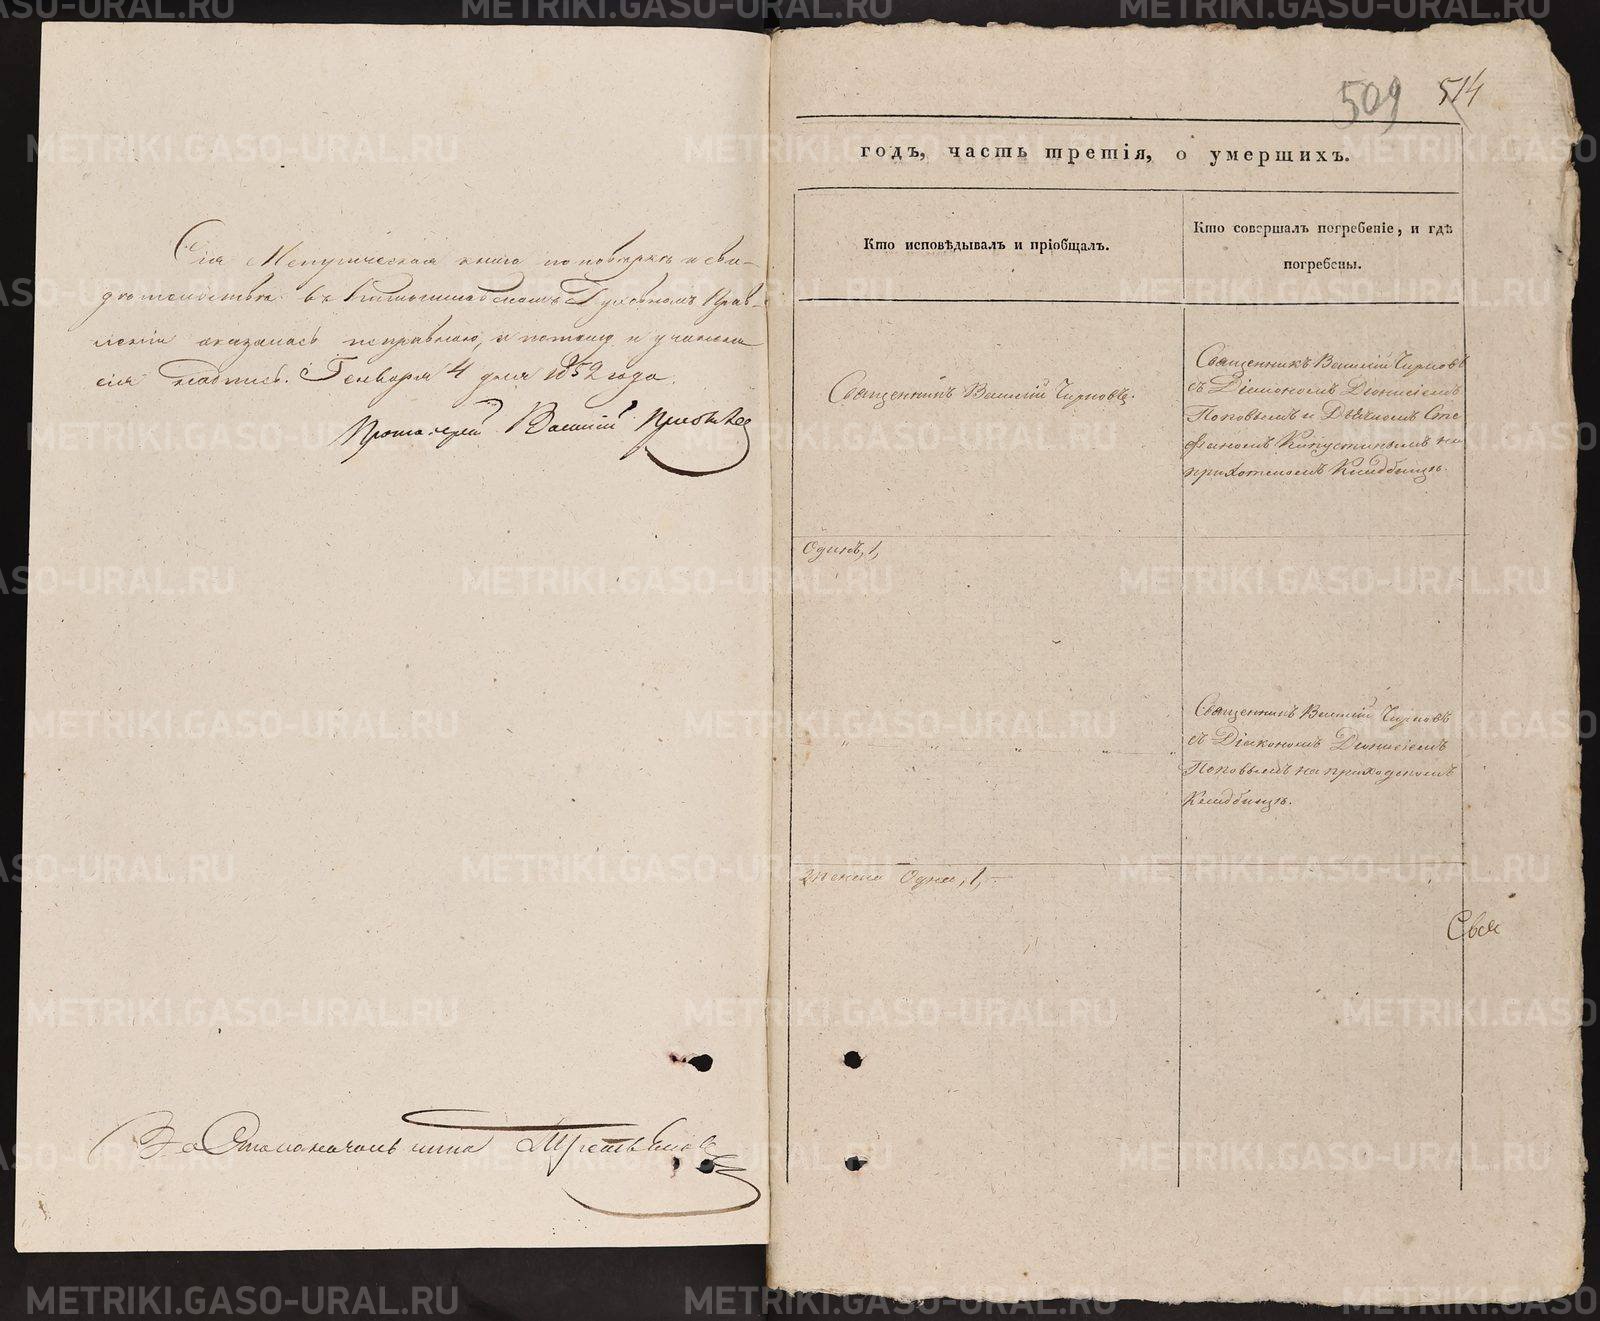 Сія Метрическая книга по повѣркѣ и сви-
дѣтельствѣ въ Духовномъ Прав-
леніи оказалась исправною, и потому и учинена
сія надпись. Генваря 4 дня 1852 года.
Протоіерей Василій
За Столоначальника Третьяковъ
509 514
годъ, часть третія, о умершихъ.
Кто исповѣдывалъ и пріобщалъ.
Кто совершалъ погребеніе, и гдѣ
погребены.
Священникъ Василій Чирковъ.
Священникъ Василій Чирковъ
съ Діакономъ Діонисіемъ
Поповымъ и Дьячкомъ Сте
фаномъ Капустинымъ на
приходскомъ Кладбищѣ.
Одинъ, 1,
Священникъ Василій Чирковъ
съ Діакономъ Діонисіемъ
Поповымъ на приходскомъ
Кладбищѣ.
женска Одна, 1,
METRIKI.GASO-URAL.RU